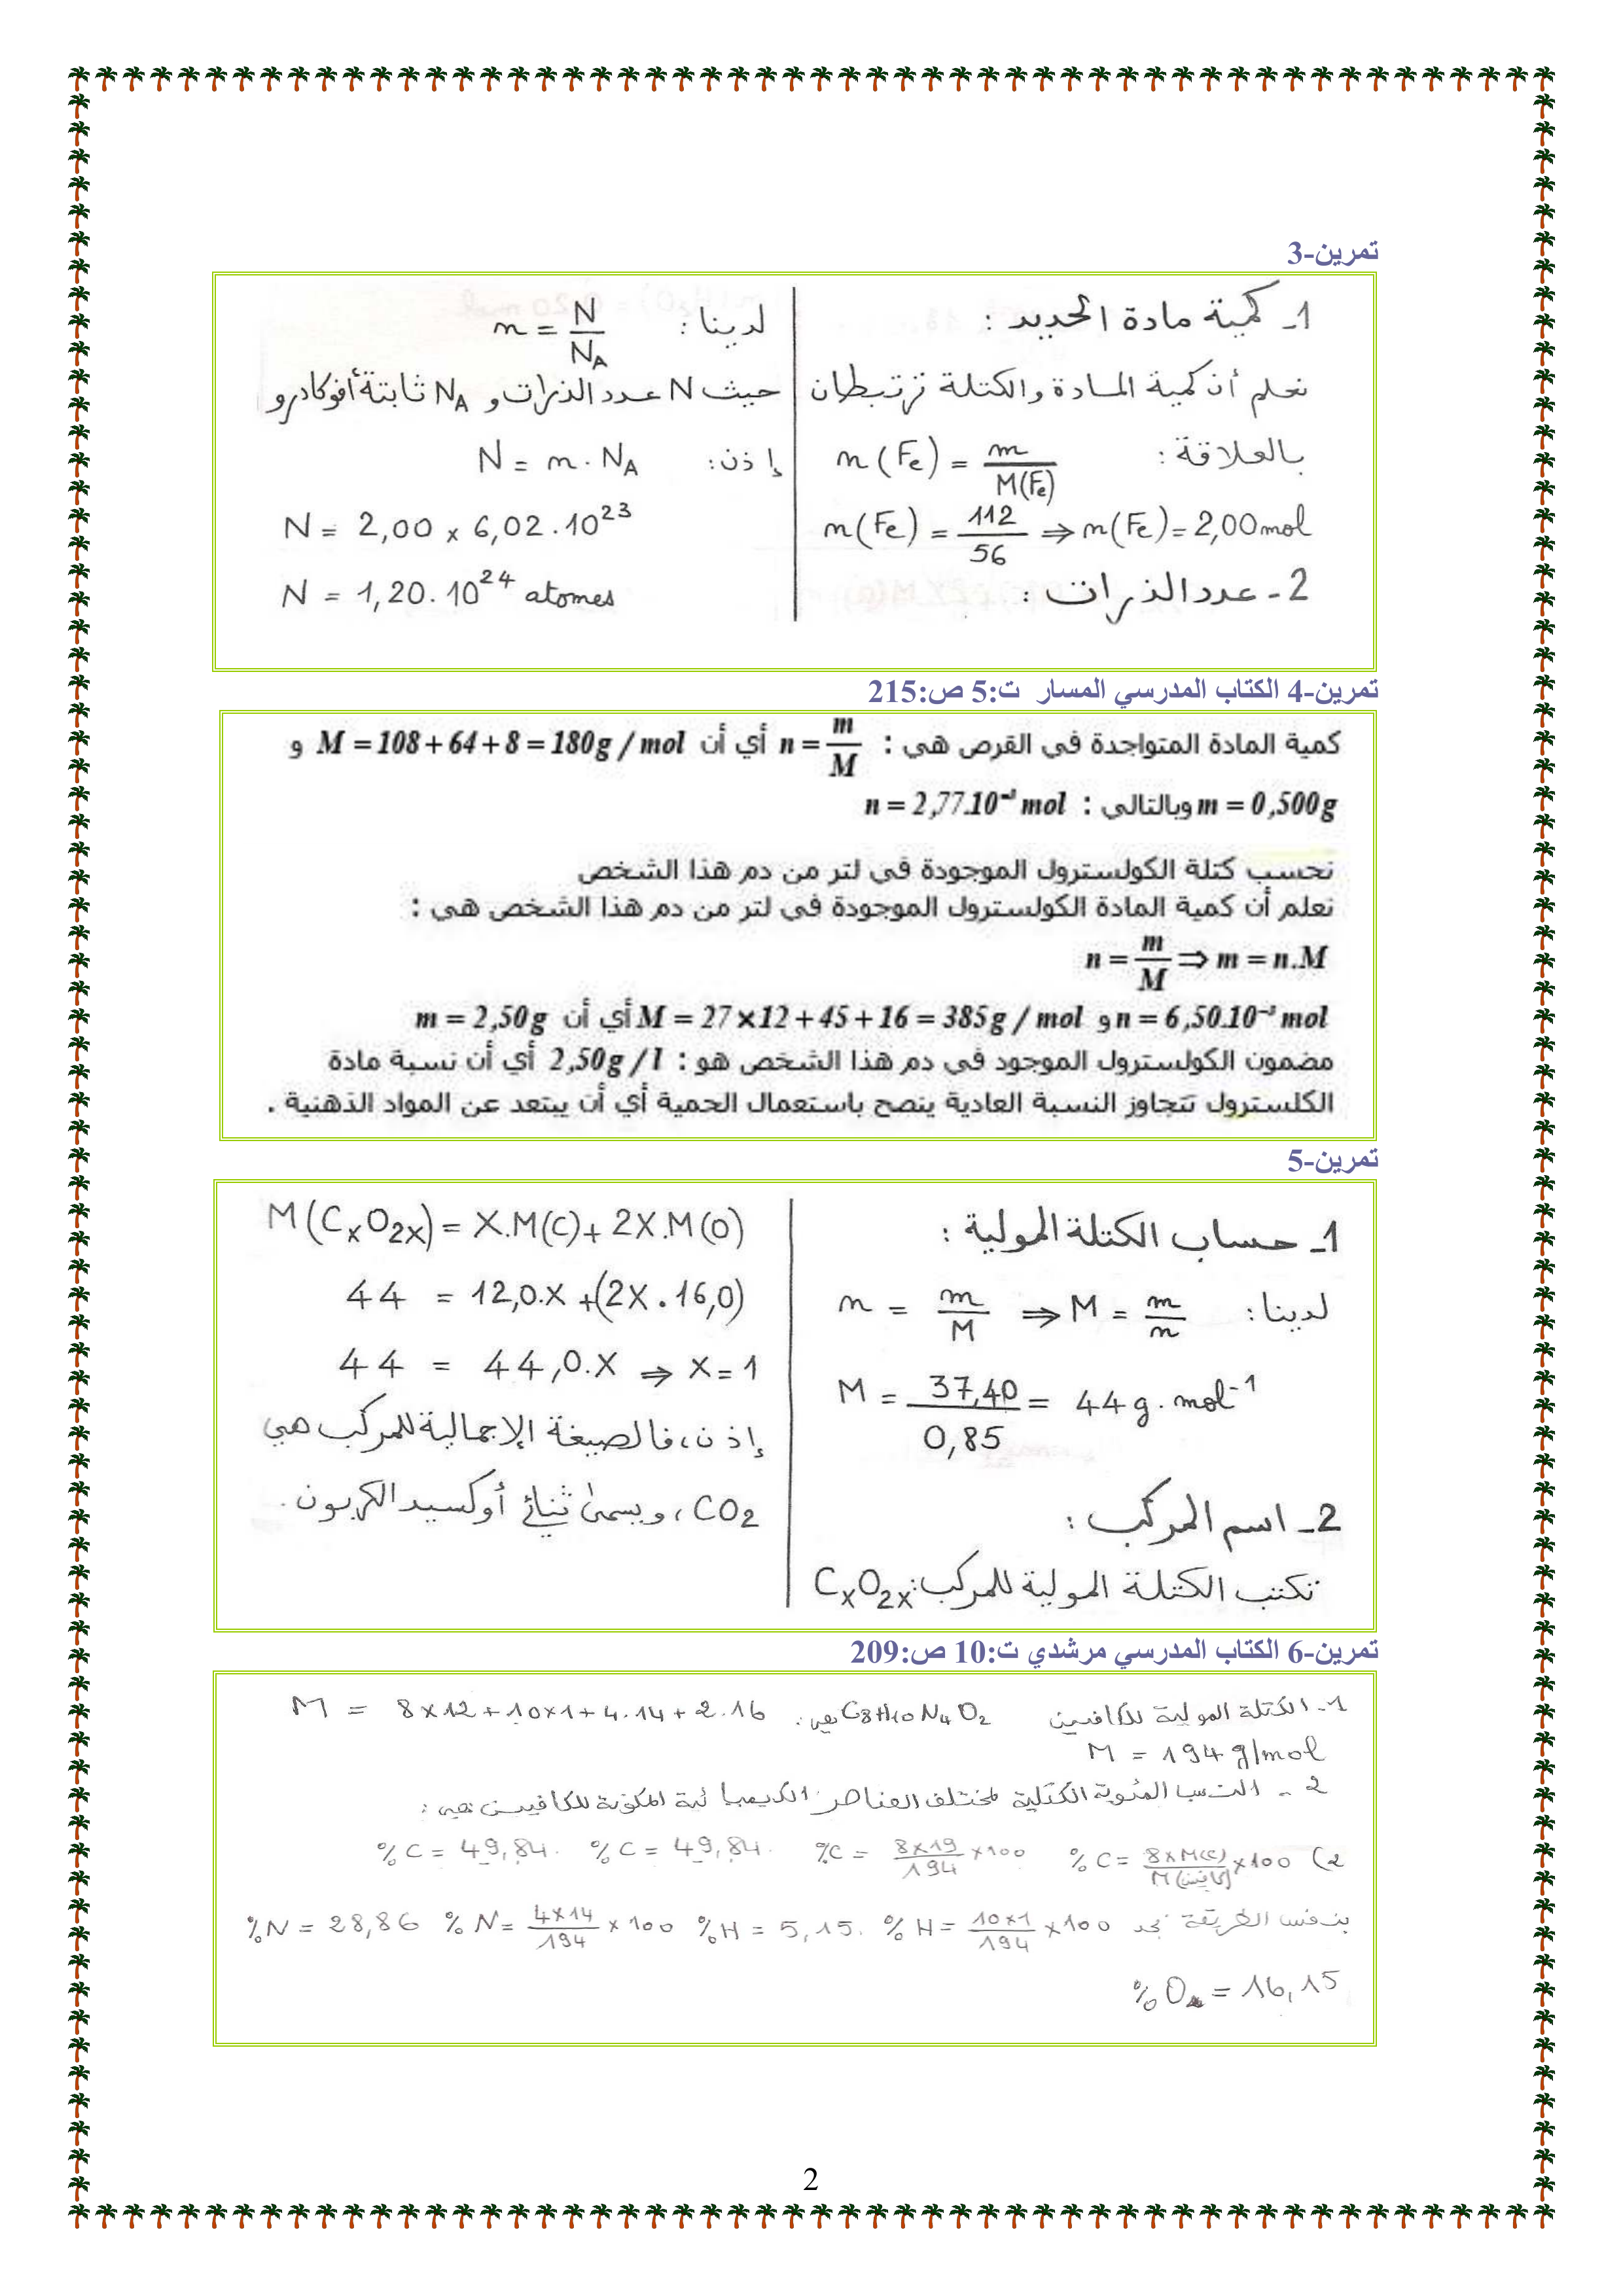 تمرين-3
1ـ كمية مادة الحديد :
نعلم أن كمية المادة والكتلة ترتبطان
بالعلاقة : n(Fe) = m / M(Fe)
n(Fe) = 112 / 56 ⇒ n(Fe) = 2,00 mol
2 - عدد الذرات :
لدينا : n = N / NA
حيث N عدد الذرات و NA ثابتة أفوكادرو
إذن : N = n . NA
N = 2,00 x 6,02 . 10²³
N = 1,20 . 10²⁴ atomes
تمرين-4 الكتاب المدرسي المسار ت:5 ص:215
كمية المادة المتواجدة في القرص هي : n = m / M أي أن M = 108 + 64 + 8 = 180g / mol و
m = 0,500g وبالتالي : n = 2,77.10⁻³ mol
نحسب كتلة الكولسترول الموجودة في لتر من دم هذا الشخص
نعلم أن كمية المادة الكولسترول الموجودة في لتر من دم هذا الشخص هي :
n = m / M ⇒ m = n.M
n = 6,50.10⁻³ mol و M = 27×12 + 45 + 16 = 385g / mol أي أن m = 2,50g
مضمون الكولسترول الموجود في دم هذا الشخص هو : 2,50g / l أي أن نسبة مادة
الكلسترول تتجاوز النسبة العادية ينصح باستعمال الحمية أي أن يبتعد عن المواد الذهنية .
تمرين-5
1ـ حساب الكتلة المولية :
لدينا : n = m / M ⇒ M = m / n
M = 37,40 / 0,85 = 44 g . mol⁻¹
2ـ اسم المركب :
تكتب الكتلة المولية للمركب CxO2x :
M(CxO2x) = X.M(C) + 2X.M(O)
44 = 12,0.X + (2X . 16,0)
44 = 44,0.X ⇒ X = 1
إذن، فالصيغة الإجمالية للمركب هي
CO2 ، ويسمى ثنائي أوكسيد الكربون .
تمرين-6 الكتاب المدرسي مرشدي ت:10 ص:209
1- الكتلة المولية للكافيين C8H10N4O2 هي : M = 8×12 + 10×1 + 4.14 + 2.16
M = 194 g/mol
2 - النسب المئوية الكتلية لمختلف العناصر الكيميائية المكونة للكافيين هي :
2) %C = 8×M(C) / M(كافيين) ×100 %C = 8×19 / 194 ×100 %C = 49,84. %C = 49,84.
بنفس الطريقة نجد %H = 10×1 / 194 ×100 %H = 5,15. %N = 4×14 / 194 ×100 %N = 28,86
%O = 16,15
2